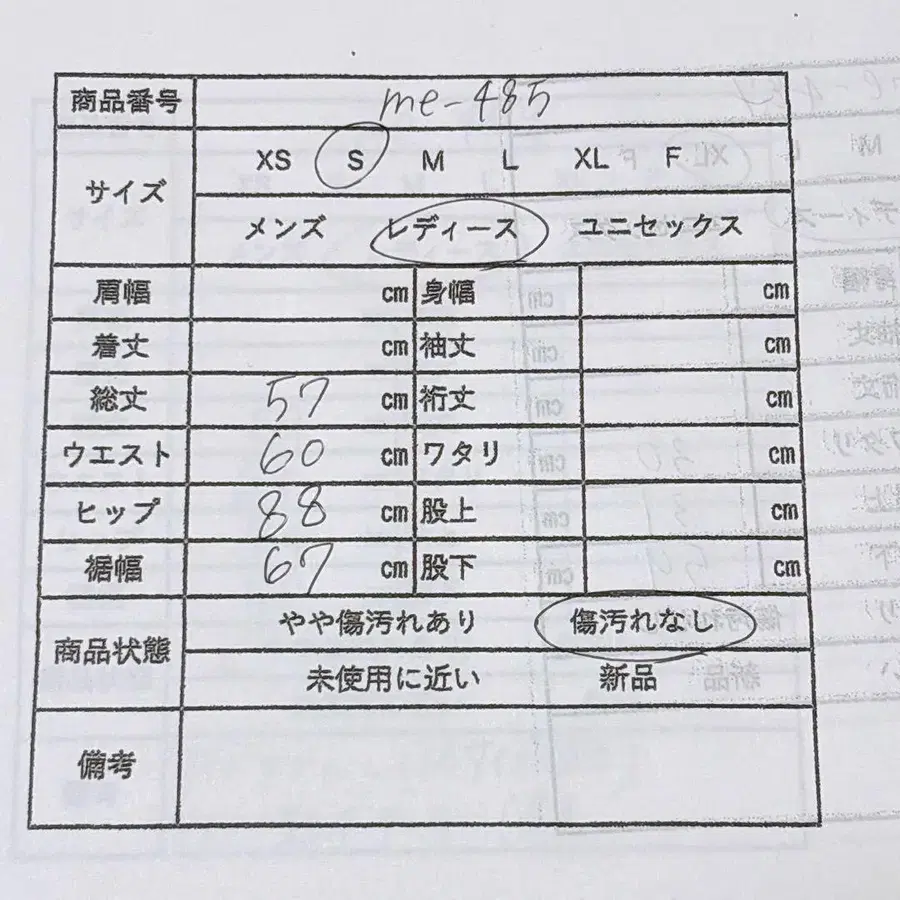 商品番号 me-485
サイズ XS S M L XL F
メンズ レディース ユニセックス
肩幅 cm 身幅 cm
着丈 cm 袖丈 cm
総丈 57 cm 裄丈 cm
ウエスト 60 cm ワタリ cm
ヒップ 88 cm 股上 cm
裾幅 67 cm 股下 cm
商品状態 やや傷汚れあり 傷汚れなし
未使用に近い 新品
備考